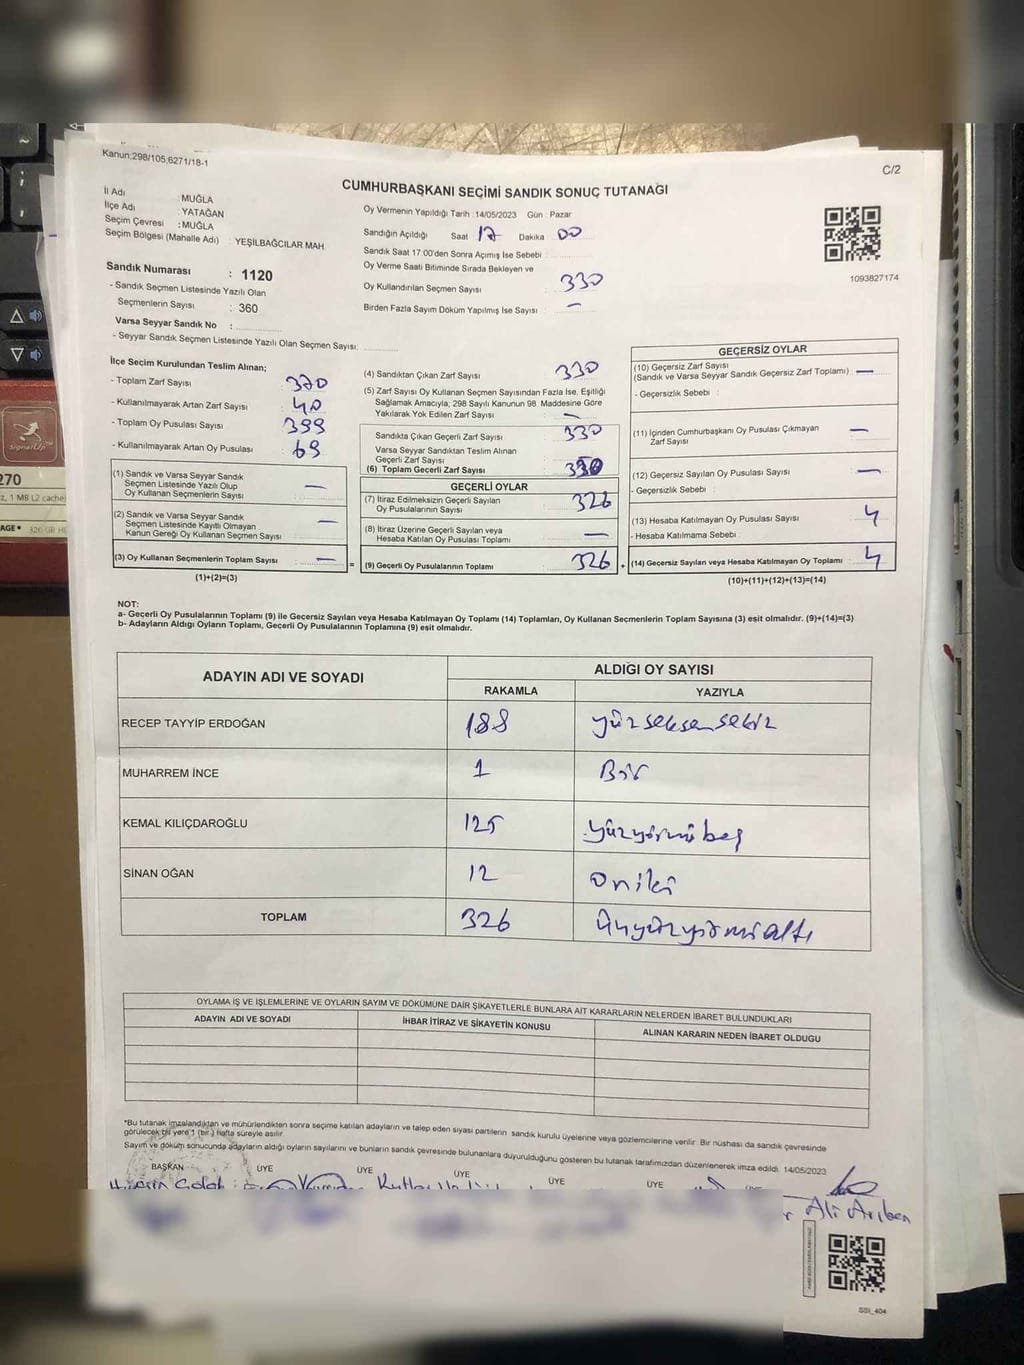 Kanun:298/105,6271/18-1
C/2
CUMHURBAŞKANI SEÇİMİ SANDIK SONUÇ TUTANAĞI
İl Adı : MUĞLA
İlçe Adı : YATAĞAN
Seçim Çevresi : MUĞLA
Seçim Bölgesi (Mahalle Adı) : YEŞİLBAĞCILAR MAH.
Sandık Numarası : 1120
- Sandık Seçmen Listesinde Yazılı Olan
Seçmenlerin Sayısı : 360
Varsa Seyyar Sandık No :
- Seyyar Sandık Seçmen Listesinde Yazılı Olan Seçmen Sayısı:
Oy Vermenin Yapıldığı Tarih : 14/05/2023 Gün : Pazar
Sandığın Açıldığı Saat 17 Dakika 00
Sandık Saat 17.00'den Sonra Açımış İse Sebebi :
Oy Verme Saati Bitiminde Sırada Bekleyen ve
Oy Kullandırılan Seçmen Sayısı : 330
Birden Fazla Sayım Döküm Yapılmış İse Sayısı : —
1093827174
İlçe Seçim Kurulundan Teslim Alınan;
- Toplam Zarf Sayısı : 370
- Kullanılmayarak Artan Zarf Sayısı : 40
- Toplam Oy Pusulası Sayısı : 399
- Kullanılmayarak Artan Oy Pusulası : 69
(1) Sandık ve Varsa Seyyar Sandık
Seçmen Listesinde Yazılı Olup
Oy Kullanan Seçmenlerin Sayısı —
(2) Sandık ve Varsa Seyyar Sandık
Seçmen Listesinde Kayıtlı Olmayan
Kanun Gereği Oy Kullanan Seçmen Sayısı —
(3) Oy Kullanan Seçmenlerin Toplam Sayısı —
(1)+(2)=(3)
(4) Sandıktan Çıkan Zarf Sayısı : 330
(5) Zarf Sayısı Oy Kullanan Seçmen Sayısından Fazla İse, Eşitliği
Sağlamak Amacıyla, 298 Sayılı Kanunun 98. Maddesine Göre
Yakılarak Yok Edilen Zarf Sayısı : —
Sandıkta Çıkan Geçerli Zarf Sayısı : 330
Varsa Seyyar Sandıktan Teslim Alınan
Geçerli Zarf Sayısı
(6) Toplam Geçerli Zarf Sayısı : 330
GEÇERLİ OYLAR
(7) İtiraz Edilmeksizin Geçerli Sayılan
Oy Pusulalarının Sayısı : 326
(8) İtiraz Üzerine Geçerli Sayılan veya
Hesaba Katılan Oy Pusulası Toplamı : —
(9) Geçerli Oy Pusulalarının Toplamı 326
GEÇERSİZ OYLAR
(10) Geçersiz Zarf Sayısı
(Sandık ve Varsa Seyyar Sandık Geçersiz Zarf Toplamı) : —
- Geçersizlik Sebebi :
(11) İçinden Cumhurbaşkanı Oy Pusulası Çıkmayan
Zarf Sayısı —
(12) Geçersiz Sayılan Oy Pusulası Sayısı —
- Geçersizlik Sebebi :
(13) Hesaba Katılmayan Oy Pusulası Sayısı 4
- Hesaba Katılmama Sebebi
(14) Geçersiz Sayılan veya Hesaba Katılmayan Oy Toplamı : 4
(10)+(11)+(12)+(13)=(14)
NOT:
a- Geçerli Oy Pusulalarının Toplamı (9) ile Geçersiz Sayılan veya Hesaba Katılmayan Oy Toplamı (14) Toplamları, Oy Kullanan Seçmenlerin Toplam Sayısına (3) eşit olmalıdır. (9)+(14)=(3)
b- Adayların Aldığı Oyların Toplamı, Geçerli Oy Pusulalarının Toplamına (9) eşit olmalıdır.
ADAYIN ADI VE SOYADI ALDIĞI OY SAYISI
RAKAMLA YAZIYLA
RECEP TAYYİP ERDOĞAN 188 yüzseksensekiz
MUHARREM İNCE 1 Bir
KEMAL KILIÇDAROĞLU 125 yüzyirmibeş
SİNAN OĞAN 12 Oniki
TOPLAM 326 Üçyüzyirmialtı
OYLAMA İŞ VE İŞLEMLERİNE VE OYLARIN SAYIM VE DÖKÜMÜNE DAİR ŞİKAYETLERLE BUNLARA AİT KARARLARIN NELERDEN İBARET BULUNDUKLARI
ADAYIN ADI VE SOYADI İHBAR İTİRAZ VE ŞİKAYETİN KONUSU ALINAN KARARIN NEDEN İBARET OLDUĞU
*Bu tutanak imzalandıktan ve mühürlendikten sonra seçime katılan adayların ve talep eden siyasi partilerin sandık kurulu üyelerine veya gözlemcilerine verilir. Bir nüshası da sandık çevresinde
görülecek bir yere 1 (bir) hafta süreyle asılır.
Sayım ve döküm sonucunda adayların aldığı oyların sayılarını ve bunların sandık çevresinde bulunanlara duyurulduğunu gösteren bu tutanak tarafımızdan düzenlenerek imza edildi. 14/05/2023
BAŞKAN ÜYE ÜYE ÜYE ÜYE ÜYE
Ali
SSI_404
SignalUp™
270
z, 1 MB L2 cache